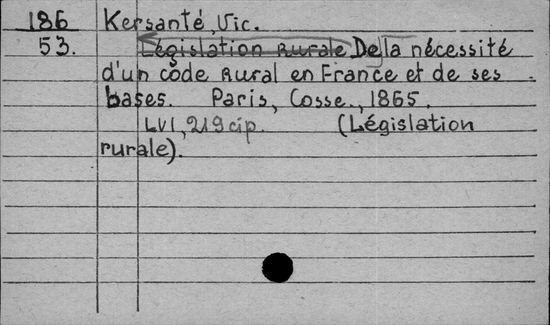 186 Kersanté, Vic.
53. Législation rurale De la nécessité
d'un code rural en France et de ses
bases. Paris, Cosse., 1865.
LVI, 219 cip. (Législation
rurale).